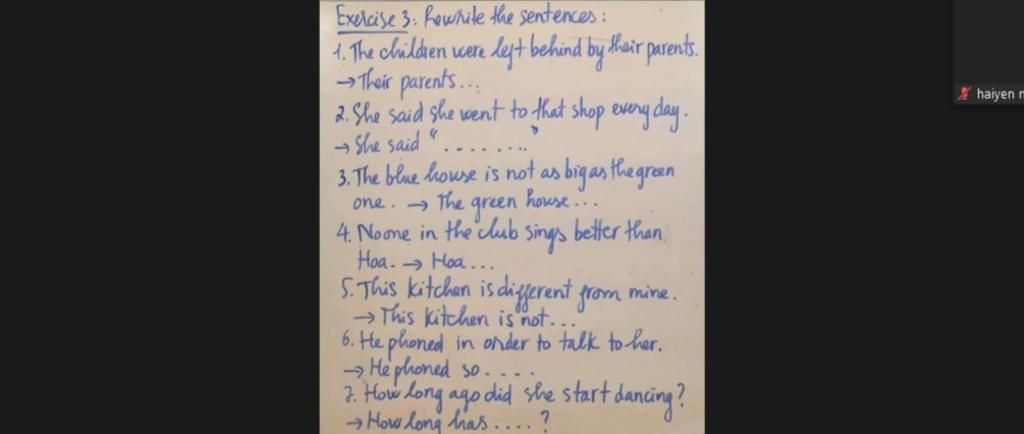 Exercise 3: Rewrite the sentences:
1. The children were left behind by their parents.
→ Their parents...
2. She said she went to that shop every day.
→ She said "........"
3. The blue house is not as big as the green
one. → The green house...
4. Noone in the club sings better than
Hoa. → Hoa...
5. This kitchen is different from mine.
→ This kitchen is not...
6. He phoned in order to talk to her.
→ He phoned so....
7. How long ago did she start dancing?
→ How long has ....?
haiyen n